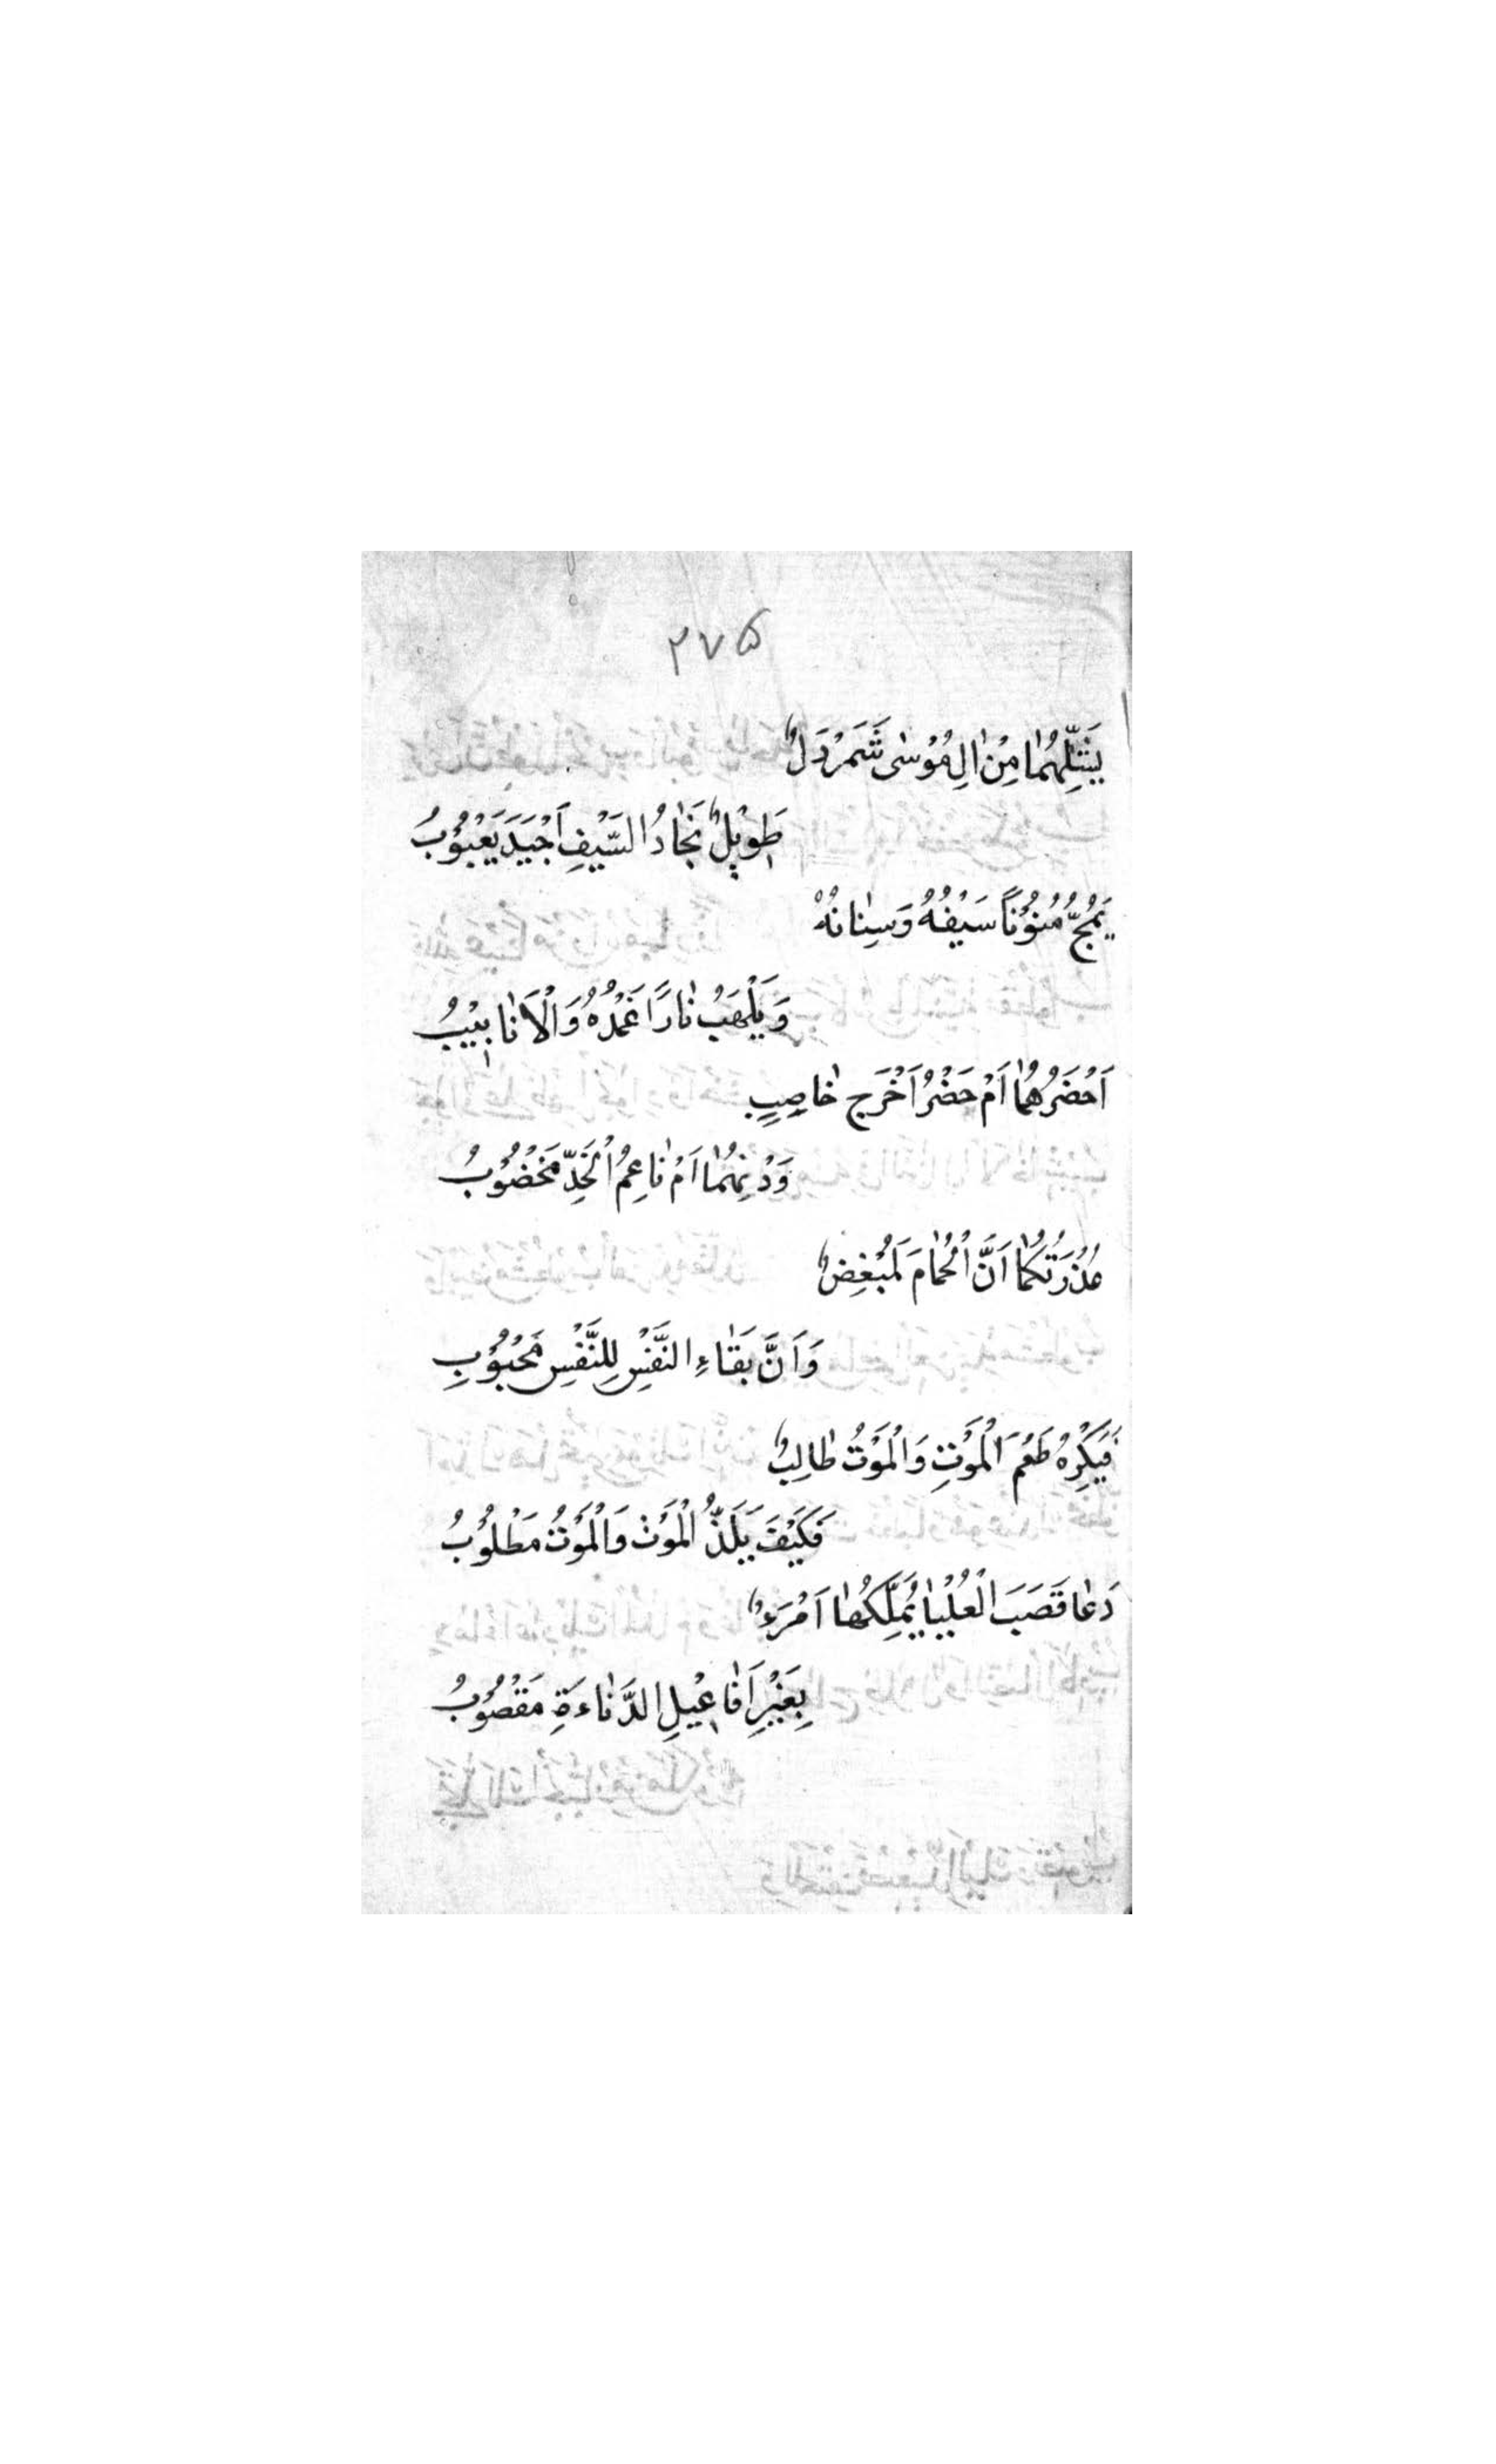 ۲۷۵
يَشُلُّهُمٰا مِنْ اٰلِ مُوْسٰى شَمَرْدَلٌ
طَوِيْلٌ نَجٰادُ السَّيْفِ اَجْيَدَ يَعْبُوْبُ
يَمُجُّ مُنُوْنًا سَيْفُهُ وَسِنٰانُهُ
وَيَلْهَبُ نٰارًا غَمْدُهُ وَالْاَنٰابِيْبُ
اَحُضْرُهُمٰا اَمْ حَضْرُ اَخْرَجِ خٰاصِبٍ
وَذٰنِهُمٰا اَمْ نٰاعِمُ الْخَدِّ مَخْضُوْبُ
عُذْرَتُكُمٰا اَنَّ الْحُمٰامَ لَمُبْغِضٌ
وَاَنَّ بَقٰاءِ النَّفْسِ لِلنَّفْسِ مَحْبُوْبِ
فَيَكْرِهُ طَعْمَ الْمَوْتِ وَالْمَوْتُ طٰالِبٌ
فَكَيْفَ يَلَذُّ الْمَوْتَ وَالْمَوْتُ مَطْلُوْبُ
دَعٰا قَصَبَ الْعُلْيٰا يُمَلِّكُهٰا اَمْرَءٌ
بِغَيْرِ اَفٰاعِيْلِ الدَّنٰاءَةِ مَقْصُوْبُ